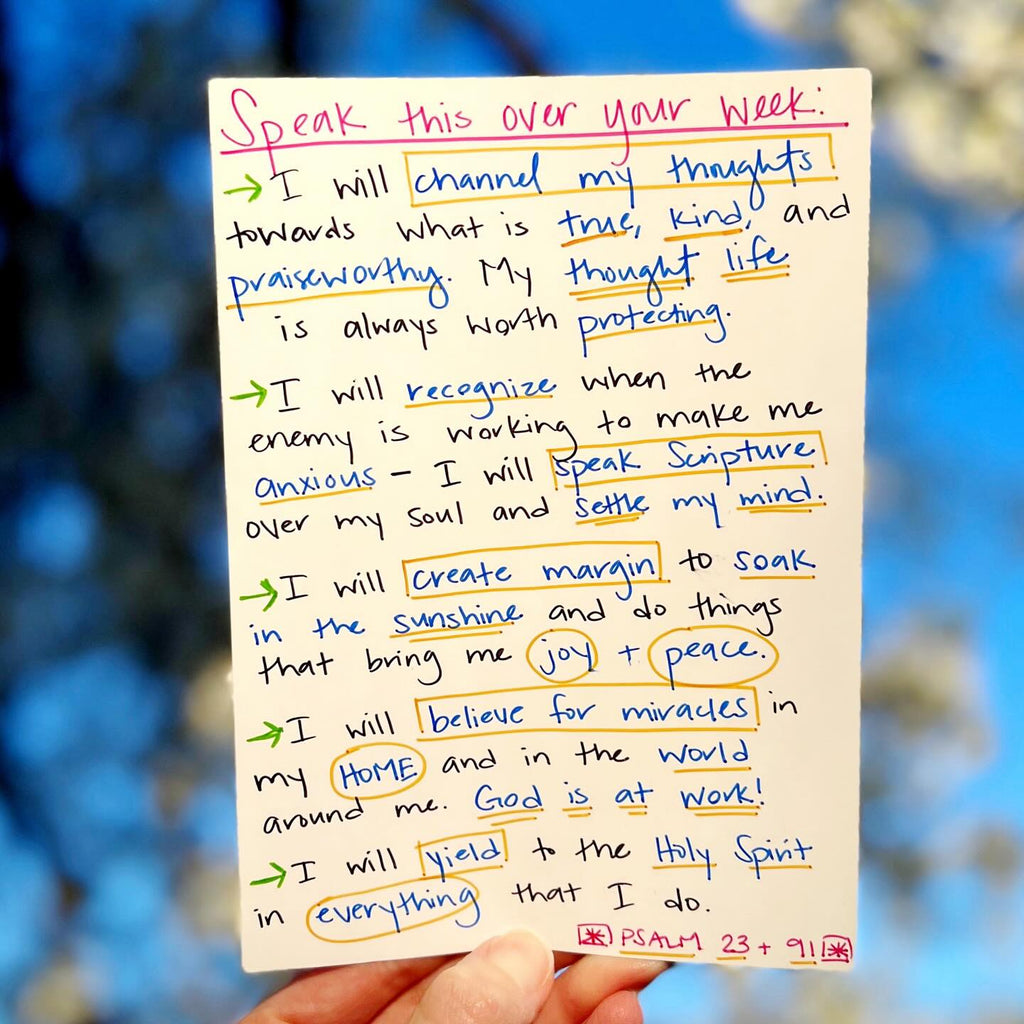 Speak this over your week:
→ I will channel my thoughts
towards what is true, kind, and
praiseworthy. My thought life
is always worth protecting.
→ I will recognize when the
enemy is working to make me
anxious – I will speak Scripture
over my soul and settle my mind.
→ I will create margin to soak
in the sunshine and do things
that bring me joy + peace.
→ I will believe for miracles in
my HOME and in the world
around me. God is at work!
→ I will yield to the Holy Spirit
in everything that I do.
PSALM 23 + 91